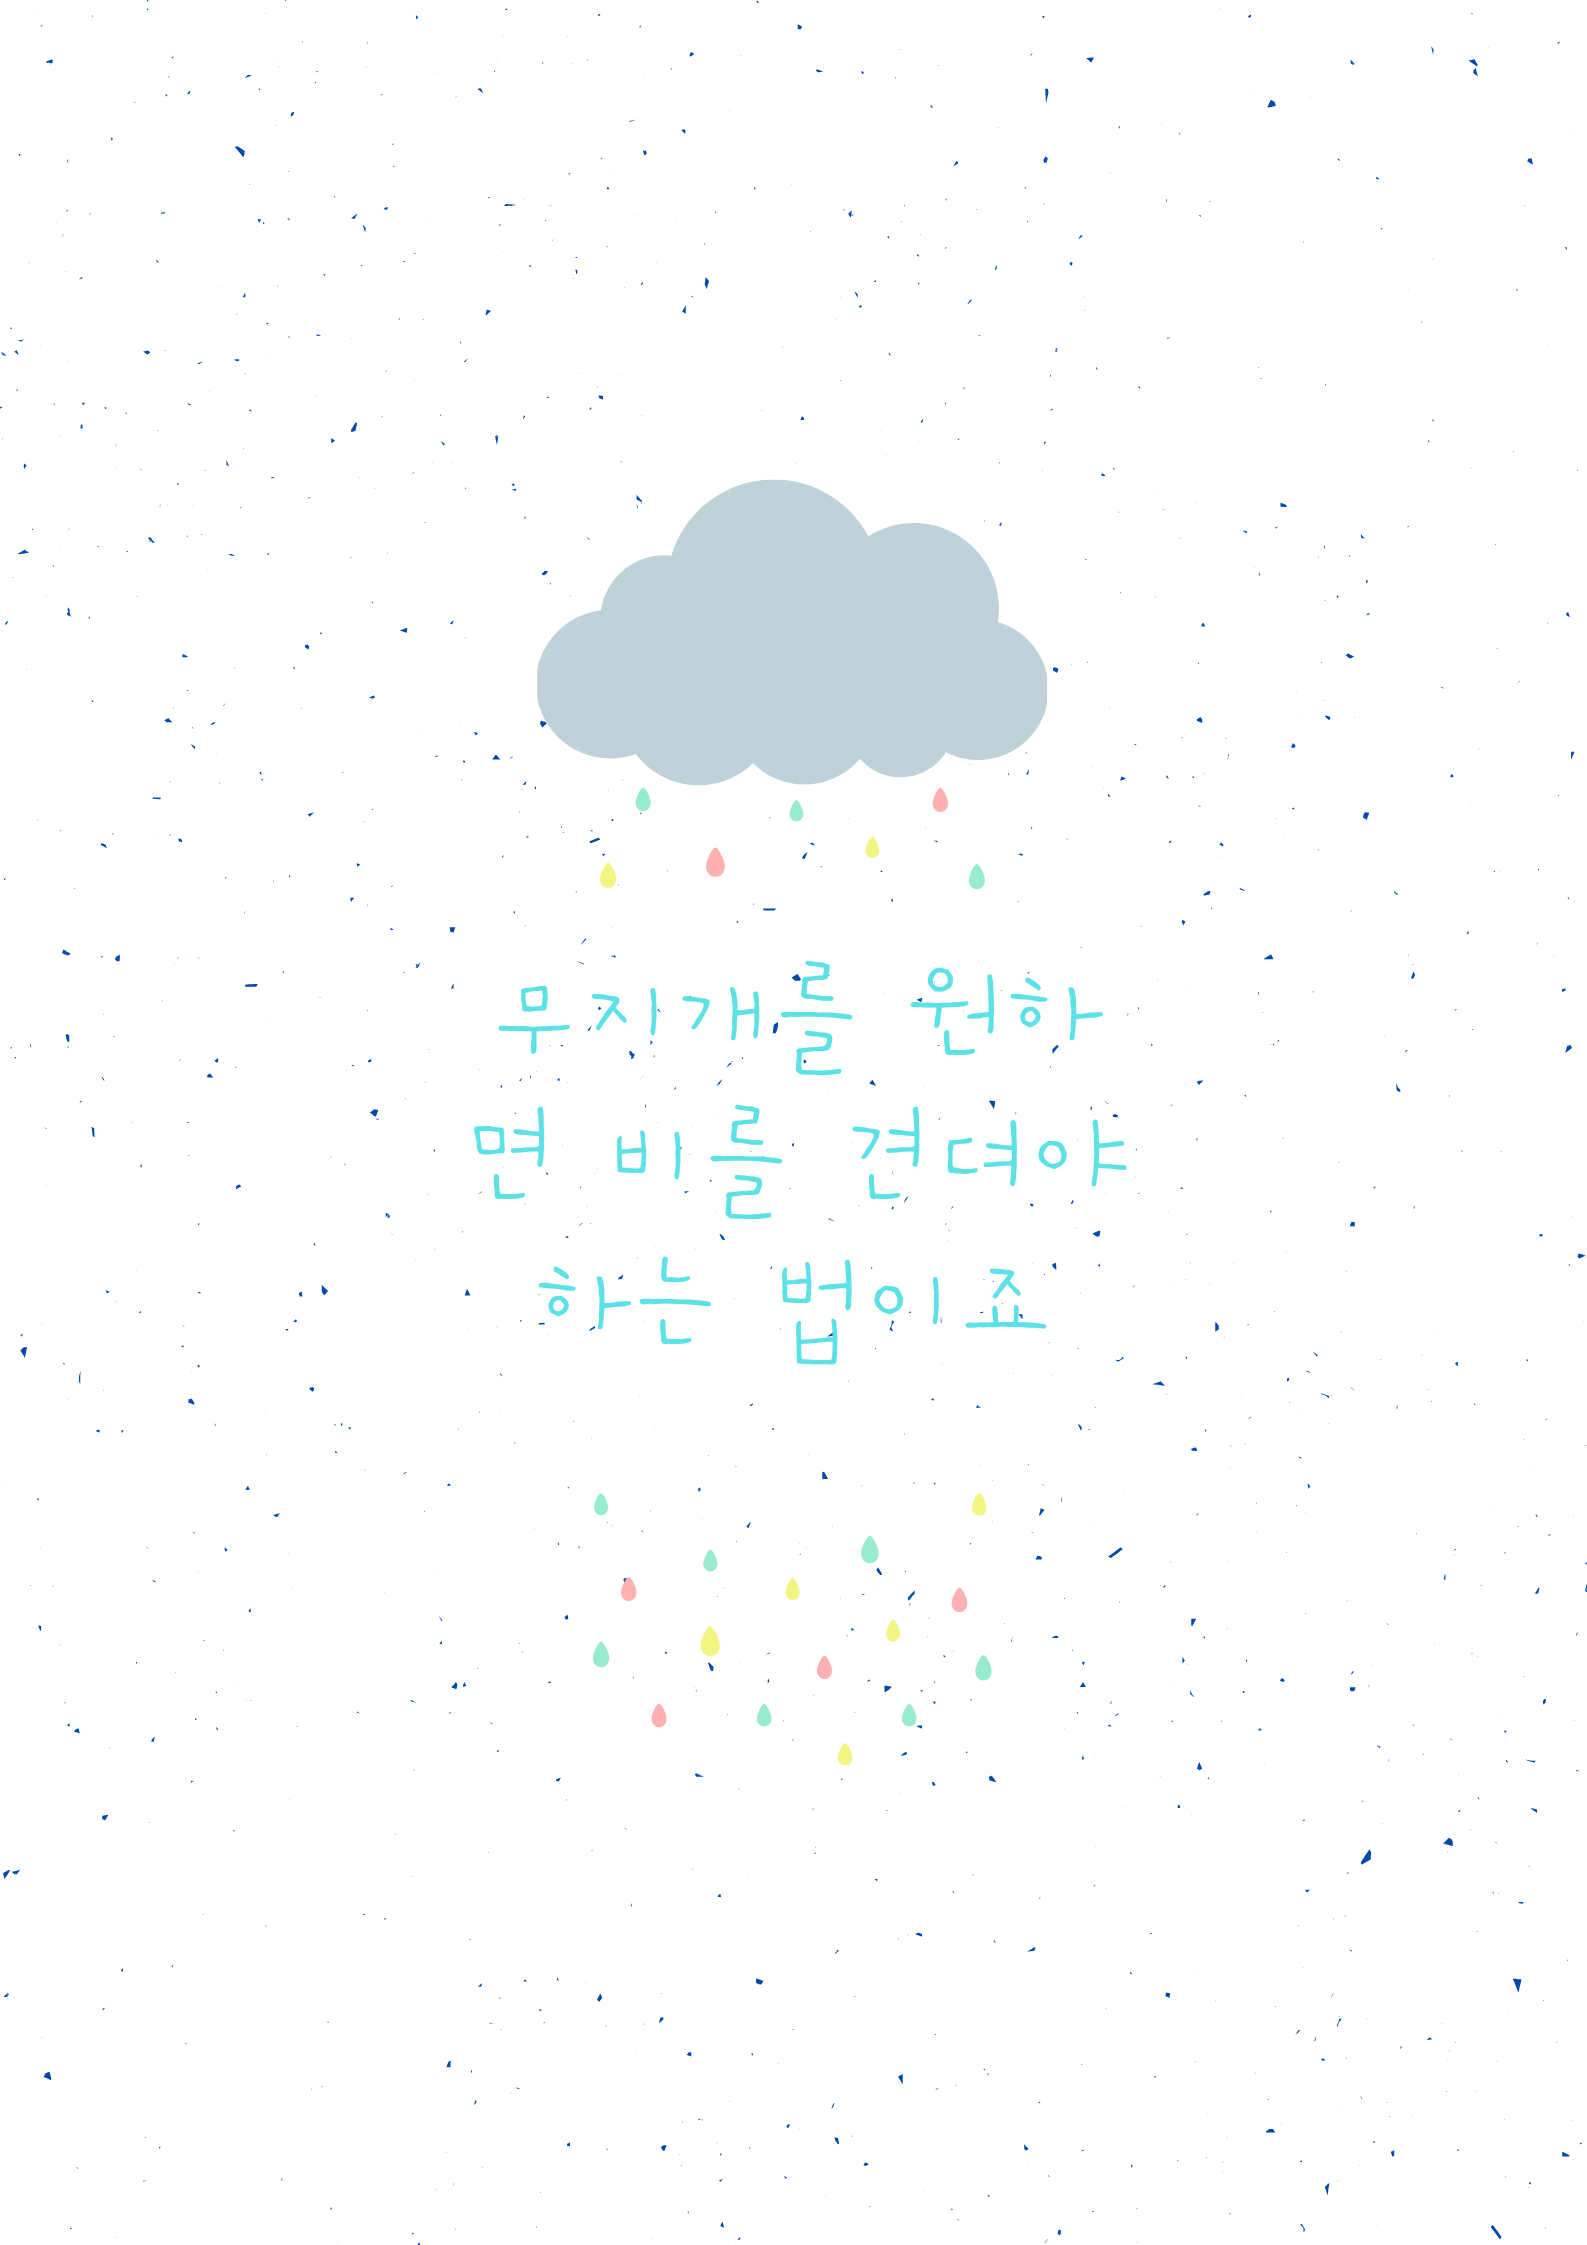 무지개를 원하
면 비를 견뎌야
하는 법이죠